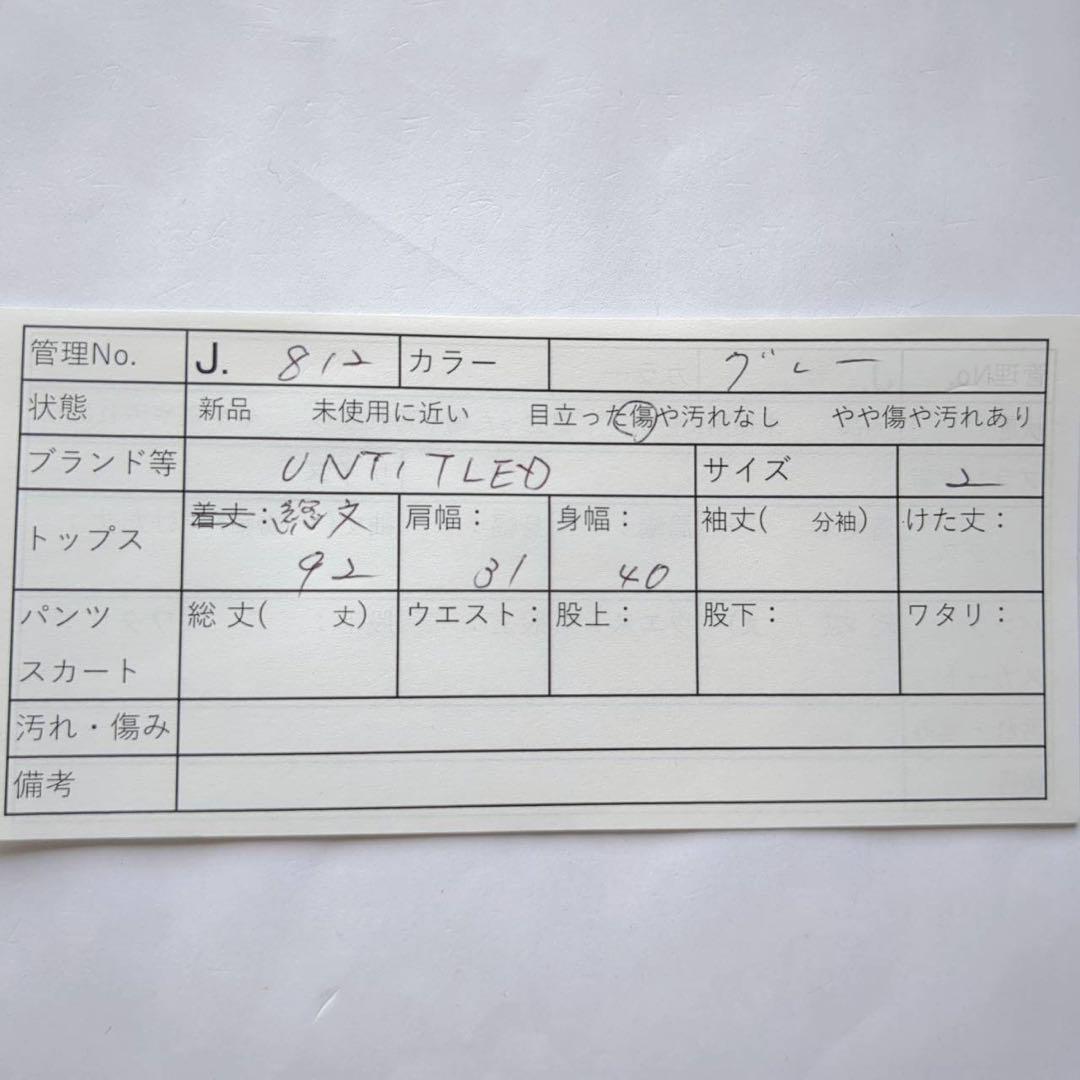 管理No. J. 812 カラー グレー
状態 新品 未使用に近い 目立った傷や汚れなし やや傷や汚れあり
ブランド等 UNTITLED サイズ 2
トップス 着丈：総丈 92 肩幅： 31 身幅： 40 袖丈( 分袖) けた丈：
パンツ スカート 総丈( 丈) ウエスト： 股上： 股下： ワタリ：
汚れ・傷み
備考